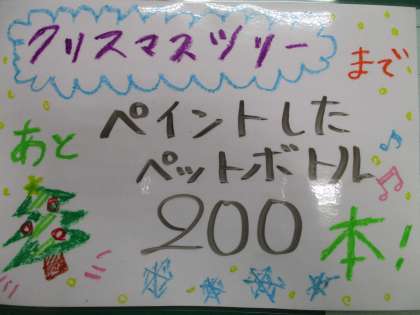 クリスマスツリー
まで
あと
ペイントした
ペットボトル
200
本!